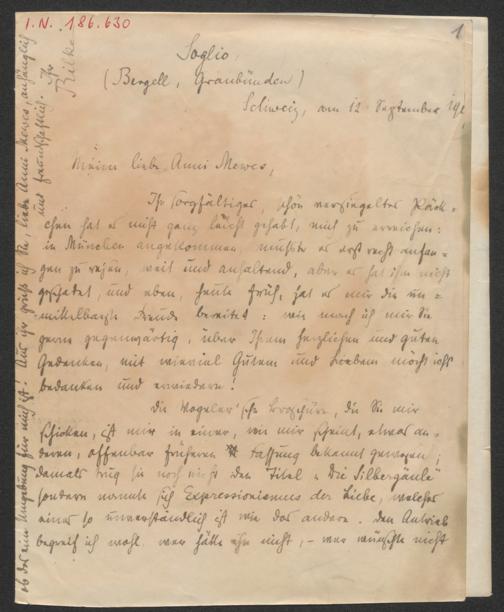 I.N. 186.630
1
Soglio
(Bergell, Graubünden)
Schweiz, am 12 September 191
Meine liebe Anni Mewes,
Ihr sorgfältiges, schön versiegeltes Päck-
chen hat es nicht ganz leicht gehabt, mich zu erreichen:
in München angekommen, mußte es erst recht anfan-
gen zu reisen, weit und anhaltend, aber es hat ihm nicht
geschadet, und eben, heute früh, hat es mir die un-
mittelbarste Freude bereitet: wie mach ich mir Sie
gern gegenwärtig, über Ihrem herzlichen und guten
Gedenken, mit wieviel Gutem und Liebem möcht ichs
bedanken und erwiedern!
Die Vogeler'sche Broschüre, die Sie mir
schicken, ist mir in einer, wie mir scheint, etwas an-
deren, offenbar früheren Fassung bekannt gewesen;
damals trug sie noch nicht den Titel "Die Silbergäule"
sondern nannte sich Expressionismus der Liebe, welches
eines so unverständlich ist wie das andere. Den Antrieb
begreif ich wohl, wer hätte ihn nicht, – wer wünschte nicht
ob das eine Umgebung für mich ist! Auf ihr grüß ich Sie, liebe Anni Mewes, anhänglich
und freundschaftlich. Ihr
Rilke